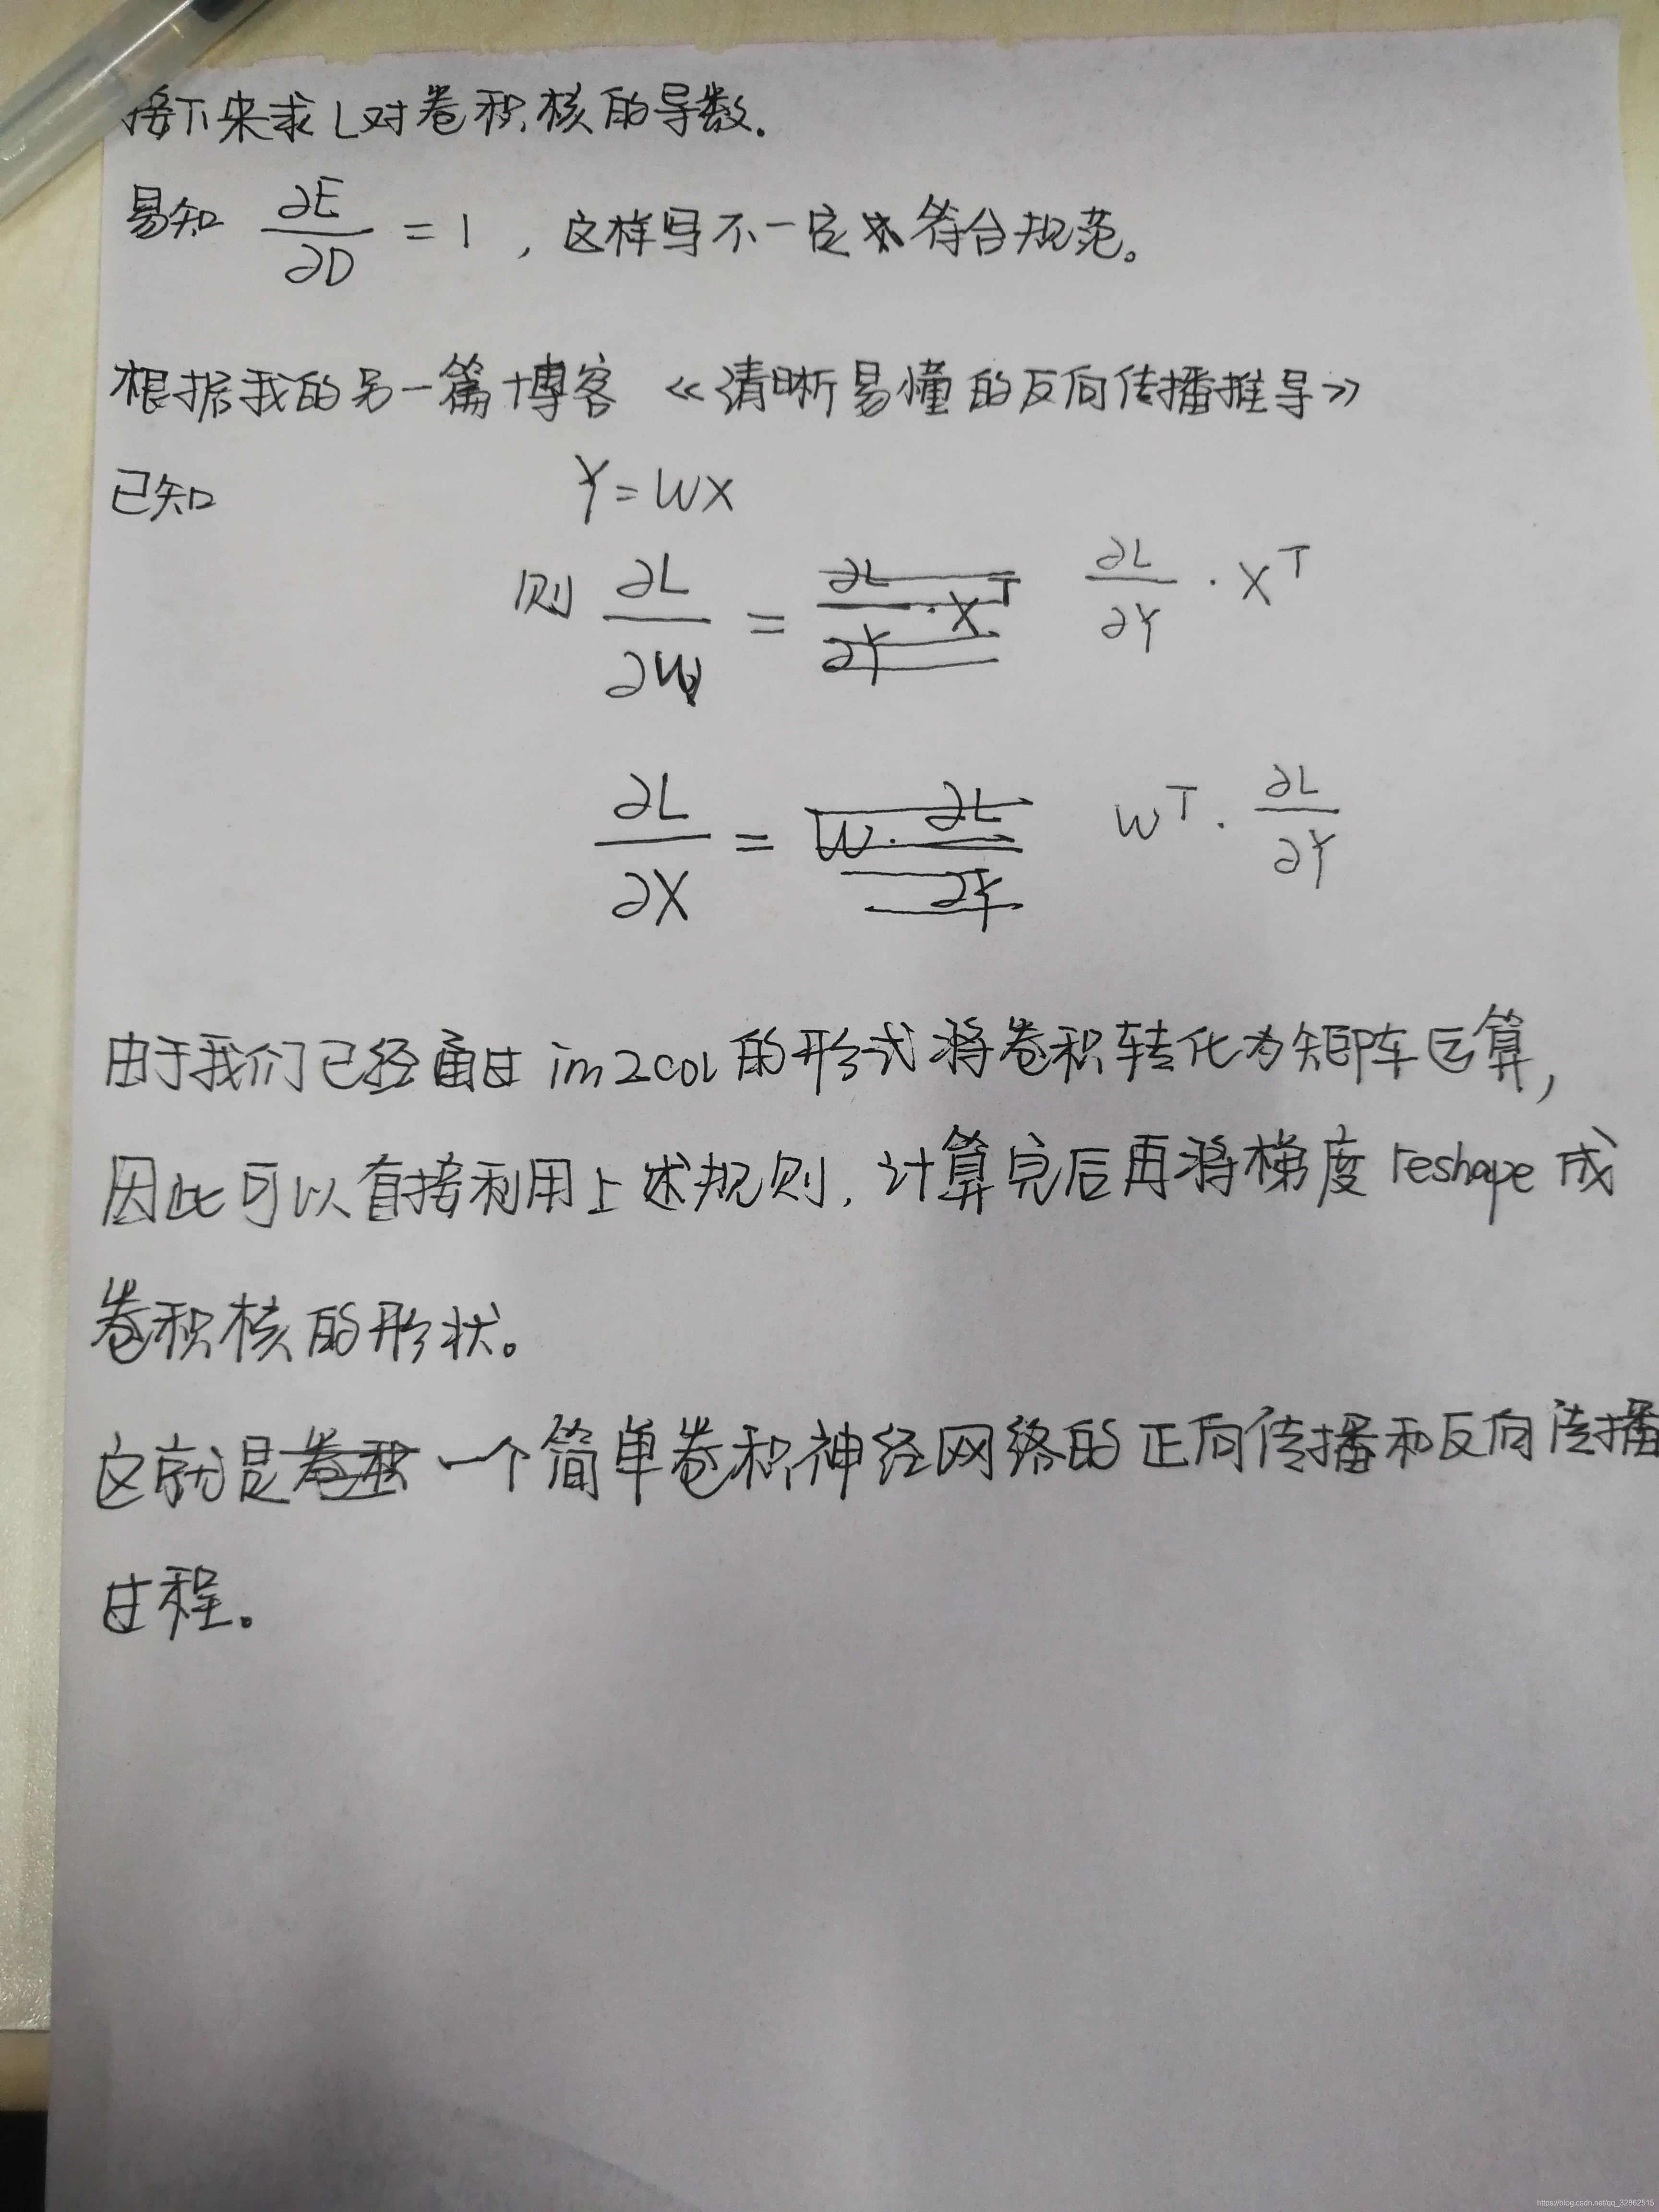 接下来求L对卷积核的导数.
易知 ∂E/∂D = 1 , 这样写不一定符合规范。
根据我的另一篇博客 《清晰易懂的反向传播推导》
已知 Y = WX
则 ∂L/∂W = ∂L/∂Y · X^T
∂L/∂X = W^T · ∂L/∂Y
由于我们已经通过 im2col 的形式将卷积转化为矩阵运算,
因此可以直接利用上述规则, 计算完后再将梯度 reshape 成
卷积核的形状。
这就是一个简单卷积神经网络的正向传播和反向传播
过程。
https://blog.csdn.net/qq_32862515